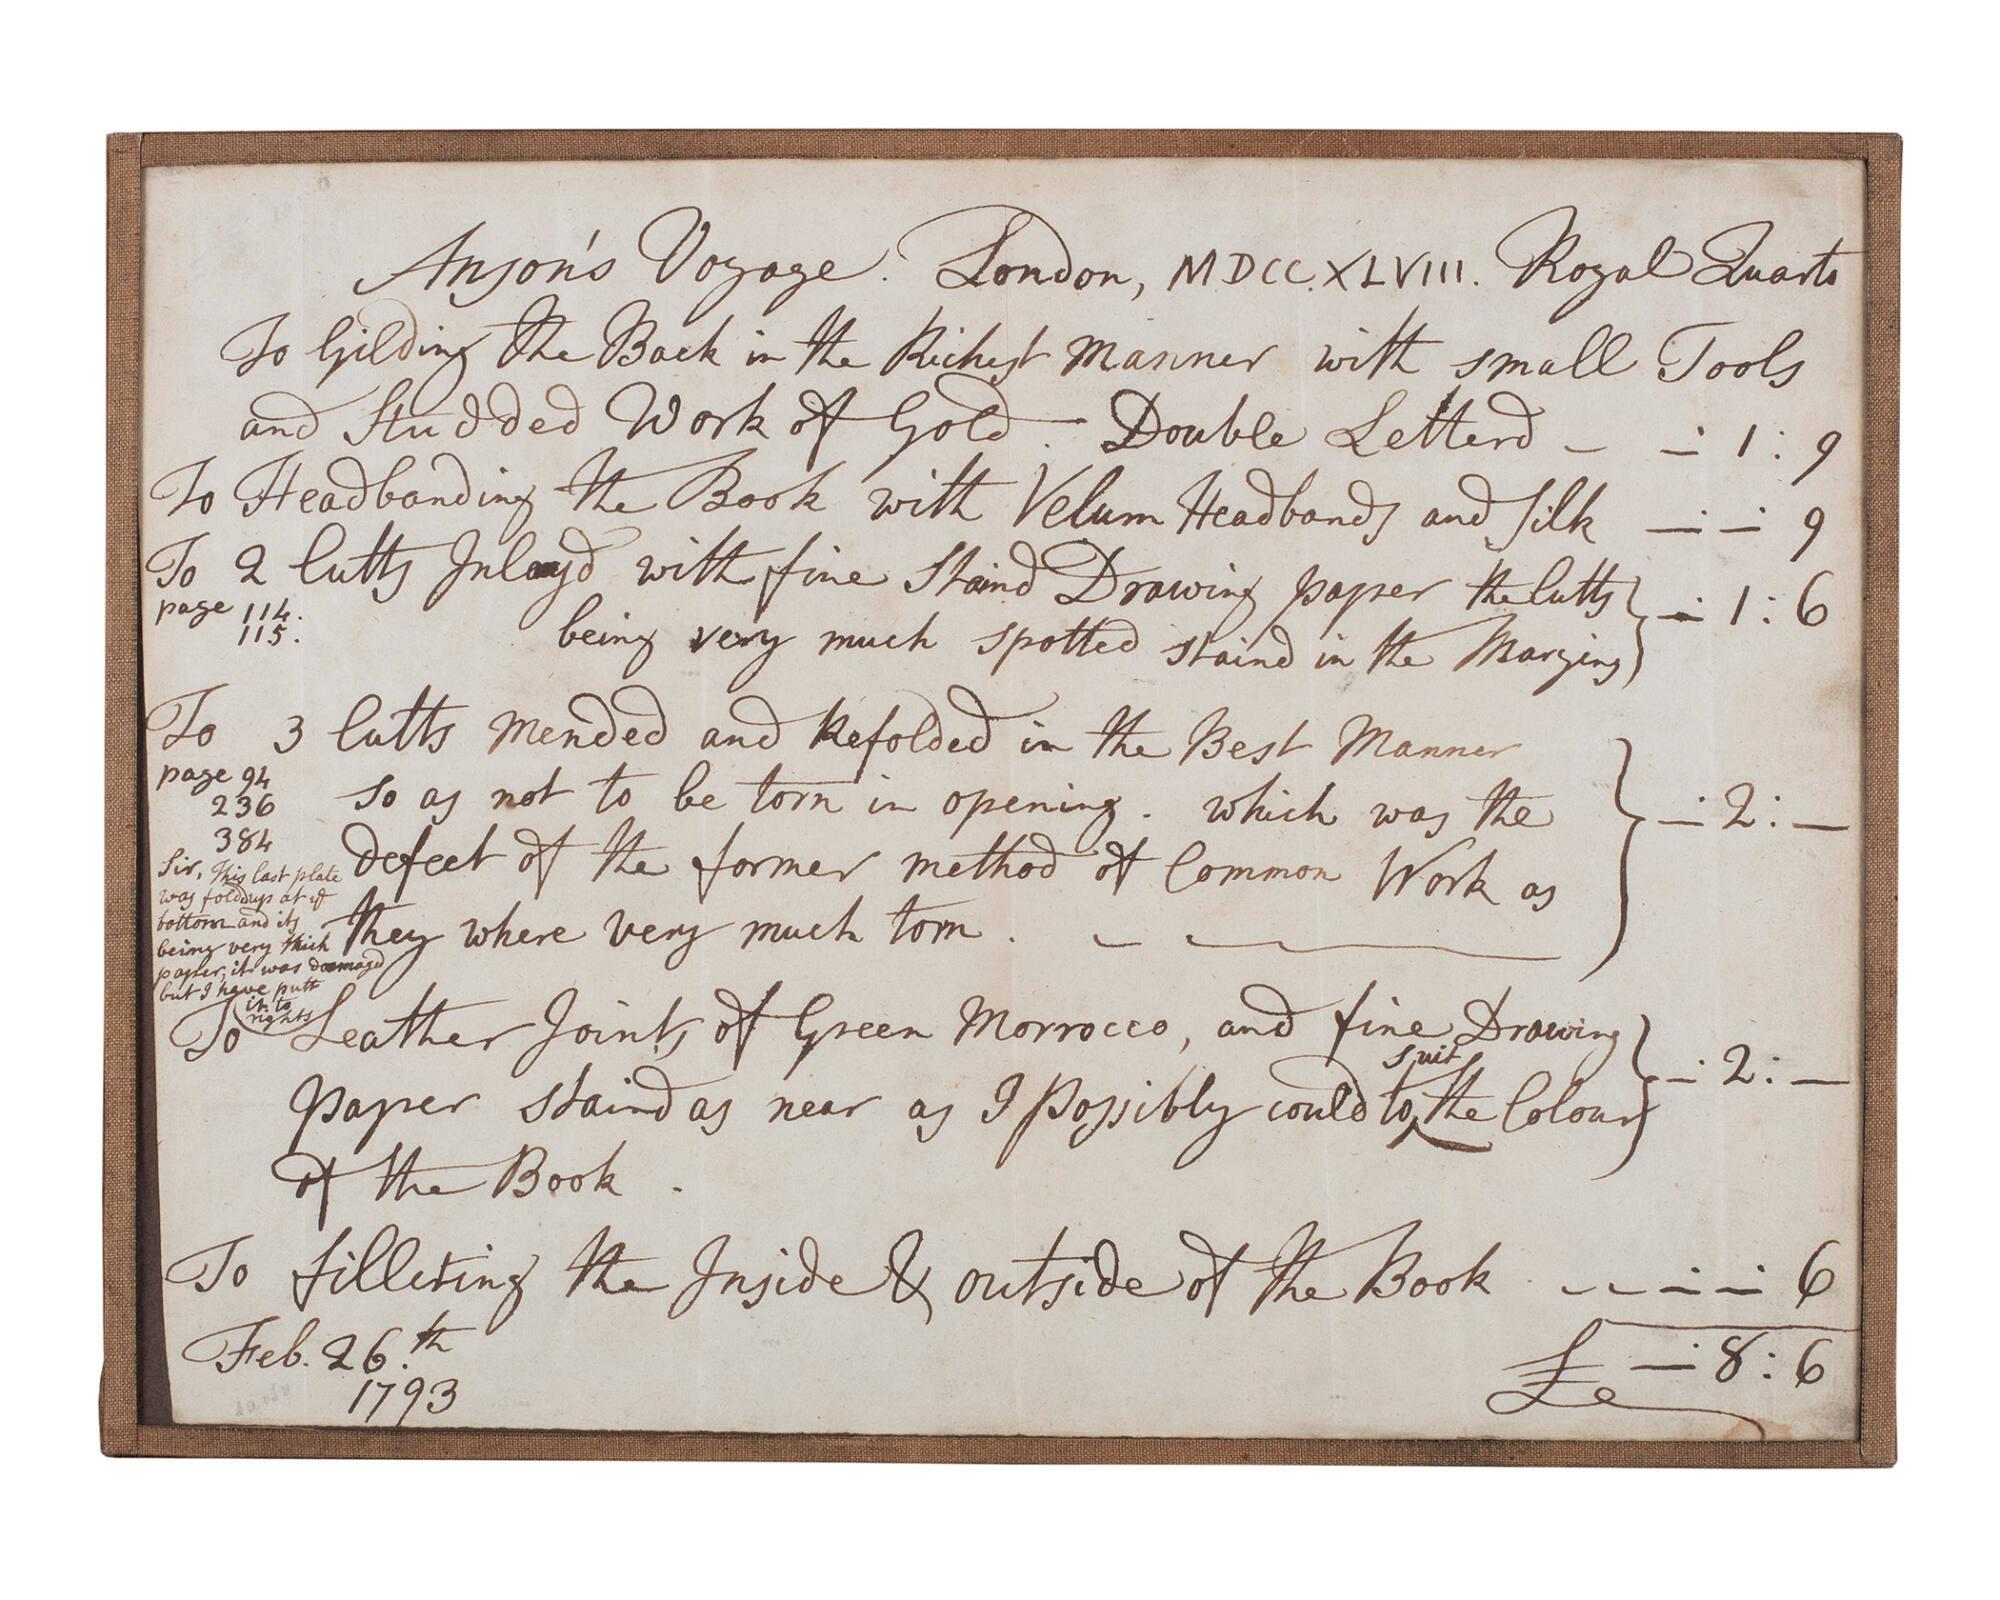 Anson's Voyage. London, MDCC.XLVIII. Royal Quarto
To Gilding the Back in the Richest Manner with small Tools
and Studded Work of Gold. - Double Letterd - - 1 : 9
To Headbanding the Book with Velum Headbands and Silk - - 9
To 2 Cutts Inlayd with fine Staind Drawing paper the Cutts
page 114.
115.
being very much spotted staind in the Margins - 1 : 6
To 3 Cutts Mended and Refolded in the Best Manner
page 94
236
384
so as not to be torn in opening. which was the - 2 : -
defect of the former method of Common Work as
they where very much torn. - -
Sir, This last plate
was folddup at ye
bottom and its
being very thick
paper, it was damagd
but I have putt
it to
rights
To Leather Joints of Green Morrocco, and fine Drawing
paper staind as near as I Possibly could to suit the Colour - 2 : -
of the Book.
To filleting the Inside & outside of the Book - - - - 6
Feb. 26.th
1793
£ - 8 : 6